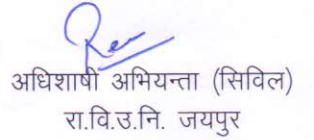 अधिशाषी अभियन्ता (सिविल)
रा.वि.उ.नि. जयपुर